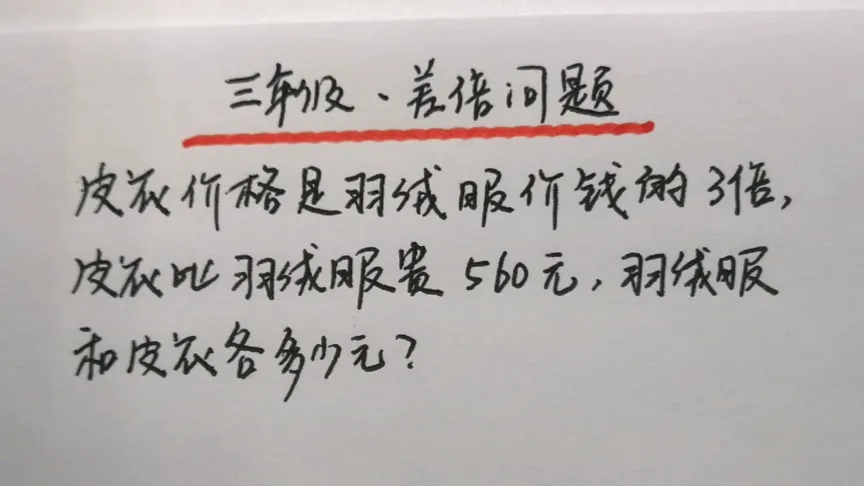 三年级、差倍问题
皮衣价格是羽绒服价钱的3倍,
皮衣比羽绒服贵560元,羽绒服
和皮衣各多少元?